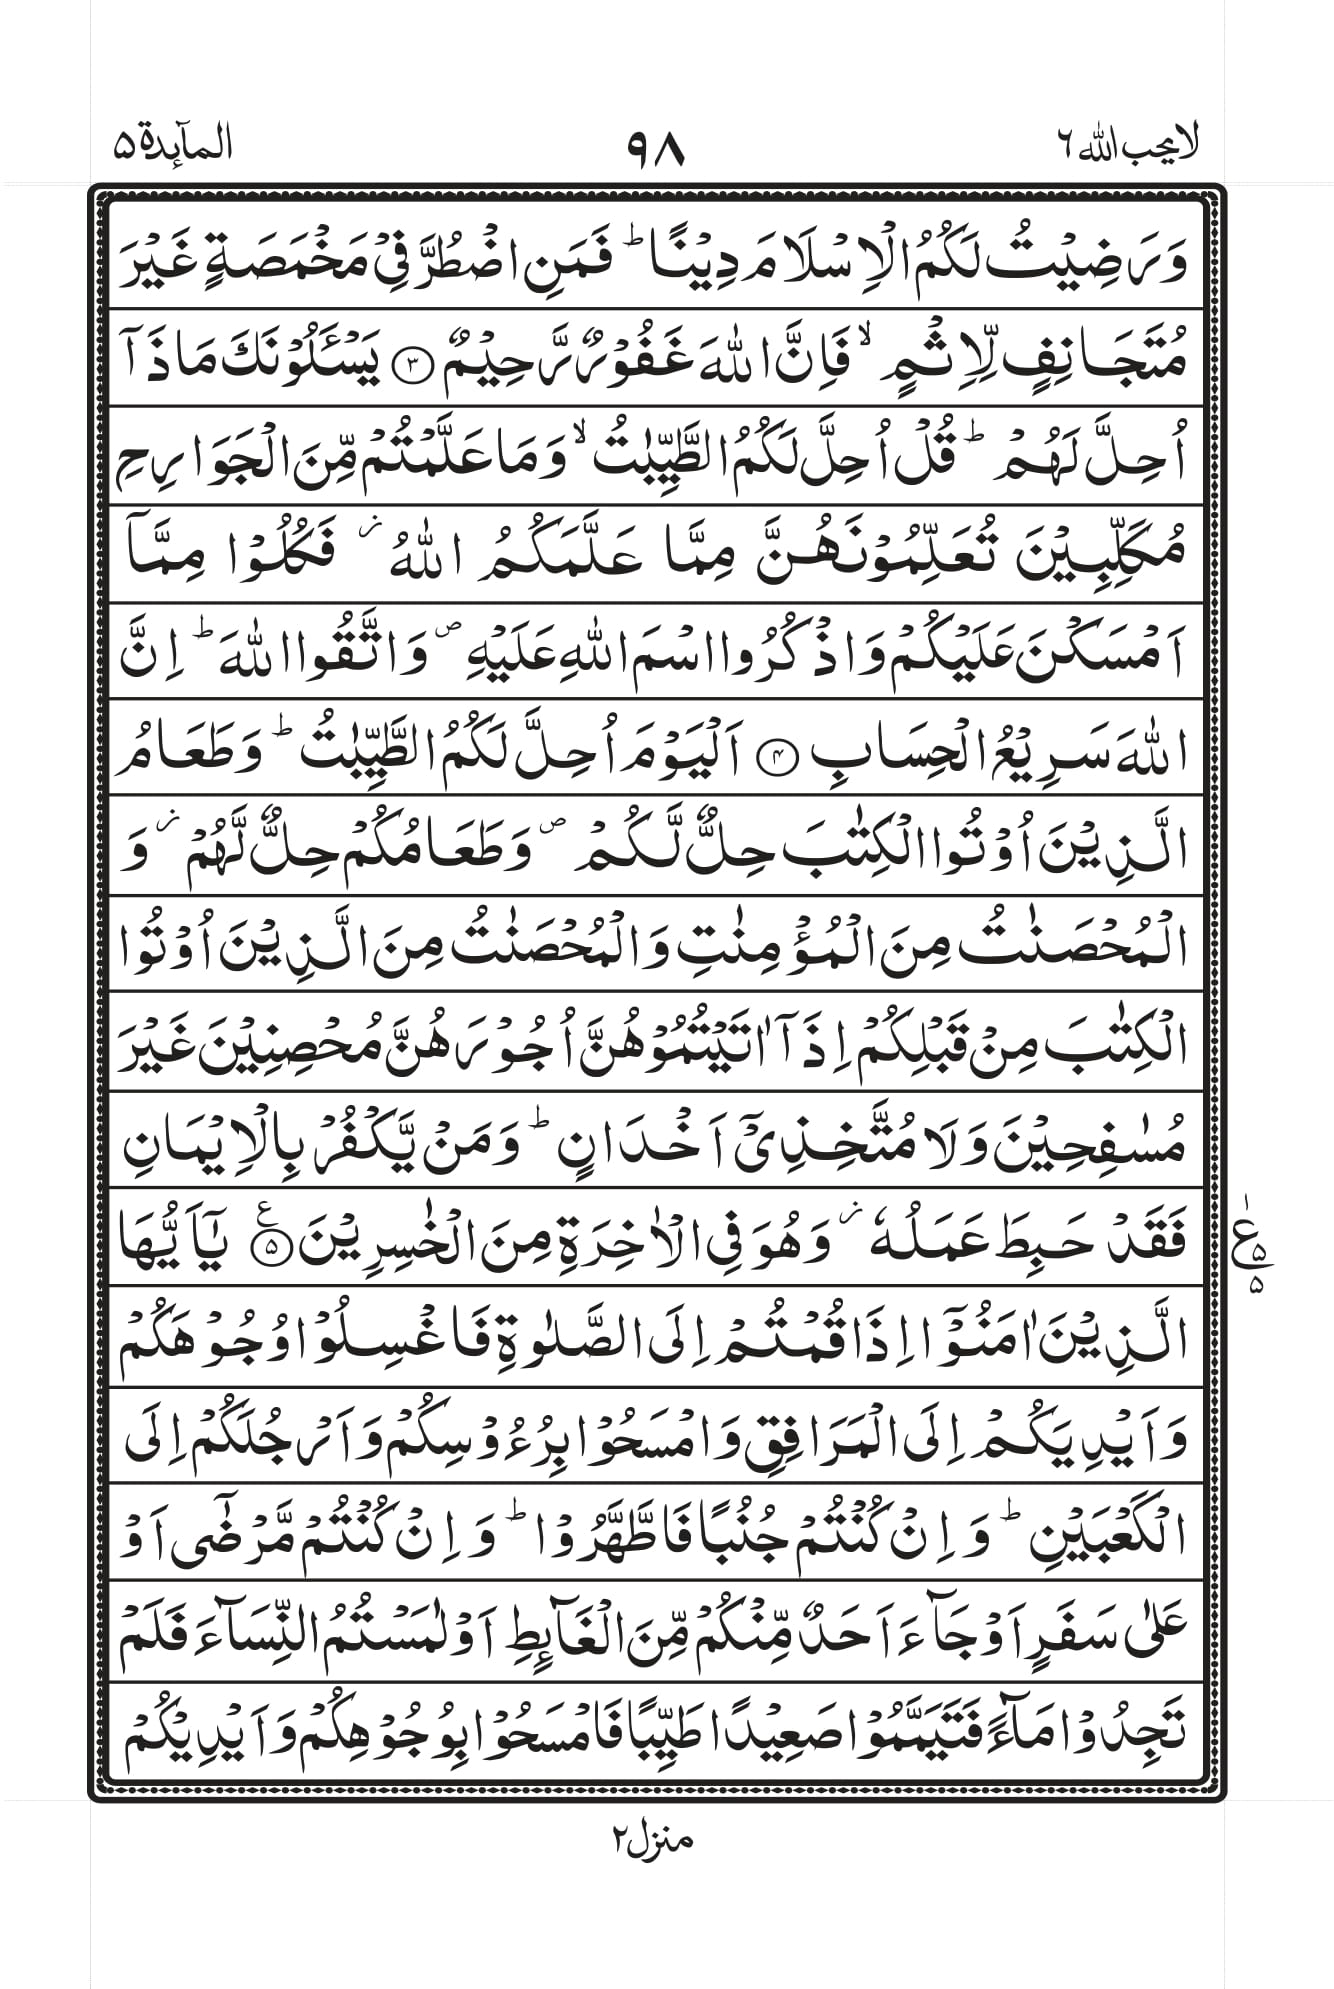 لا يحب الله ٦
٩٨
المآئدة ٥
وَرَضِيْتُ لَكُمُ الْاِسْلَامَ دِيْنًا ؕ فَمَنِ اضْطُرَّ فِيْ مَخْمَصَةٍ غَيْرَ
مُتَجَانِفٍ لِّاِثْمٍ ۙ فَاِنَّ اللّٰهَ غَفُوْرٌ رَّحِيْمٌ ﴿٣﴾ يَسْـَٔلُوْنَكَ مَاذَآ
اُحِلَّ لَهُمْ ؕ قُلْ اُحِلَّ لَكُمُ الطَّيِّبٰتُ ۙ وَمَا عَلَّمْتُمْ مِّنَ الْجَوَارِحِ
مُكَلِّبِيْنَ تُعَلِّمُوْنَهُنَّ مِمَّا عَلَّمَكُمُ اللّٰهُ ؗ فَكُلُوْا مِمَّآ
اَمْسَكْنَ عَلَيْكُمْ وَاذْكُرُوا اسْمَ اللّٰهِ عَلَيْهِ ۪ وَاتَّقُوا اللّٰهَ ؕ اِنَّ
اللّٰهَ سَرِيْعُ الْحِسَابِ ﴿۴﴾ اَلْيَوْمَ اُحِلَّ لَكُمُ الطَّيِّبٰتُ ؕ وَطَعَامُ
الَّذِيْنَ اُوْتُوا الْكِتٰبَ حِلٌّ لَّكُمْ ۪ وَطَعَامُكُمْ حِلٌّ لَّهُمْ ؗ وَ
الْمُحْصَنٰتُ مِنَ الْمُؤْمِنٰتِ وَالْمُحْصَنٰتُ مِنَ الَّذِيْنَ اُوْتُوا
الْكِتٰبَ مِنْ قَبْلِكُمْ اِذَآ اٰتَيْتُمُوْهُنَّ اُجُوْرَهُنَّ مُحْصِنِيْنَ غَيْرَ
مُسٰفِحِيْنَ وَلَا مُتَّخِذِيْٓ اَخْدَانٍ ؕ وَمَنْ يَّكْفُرْ بِالْاِيْمَانِ
فَقَدْ حَبِطَ عَمَلُهٗ ؗ وَهُوَ فِي الْاٰخِرَةِ مِنَ الْخٰسِرِيْنَ ﴿۵﴾ ع يٰٓاَيُّهَا
ع ١ ۵ ۵
الَّذِيْنَ اٰمَنُوْٓا اِذَا قُمْتُمْ اِلَى الصَّلٰوةِ فَاغْسِلُوْا وُجُوْهَكُمْ
وَاَيْدِيَكُمْ اِلَى الْمَرَافِقِ وَامْسَحُوْا بِرُءُوْسِكُمْ وَاَرْجُلَكُمْ اِلَى
الْكَعْبَيْنِ ؕ وَاِنْ كُنْتُمْ جُنُبًا فَاطَّهَّرُوْا ؕ وَاِنْ كُنْتُمْ مَّرْضٰٓى اَوْ
عَلٰى سَفَرٍ اَوْ جَآءَ اَحَدٌ مِّنْكُمْ مِّنَ الْغَآئِطِ اَوْ لٰمَسْتُمُ النِّسَآءَ فَلَمْ
تَجِدُوْا مَآءً فَتَيَمَّمُوْا صَعِيْدًا طَيِّبًا فَامْسَحُوْا بِوُجُوْهِكُمْ وَاَيْدِيْكُمْ
منزل ٢